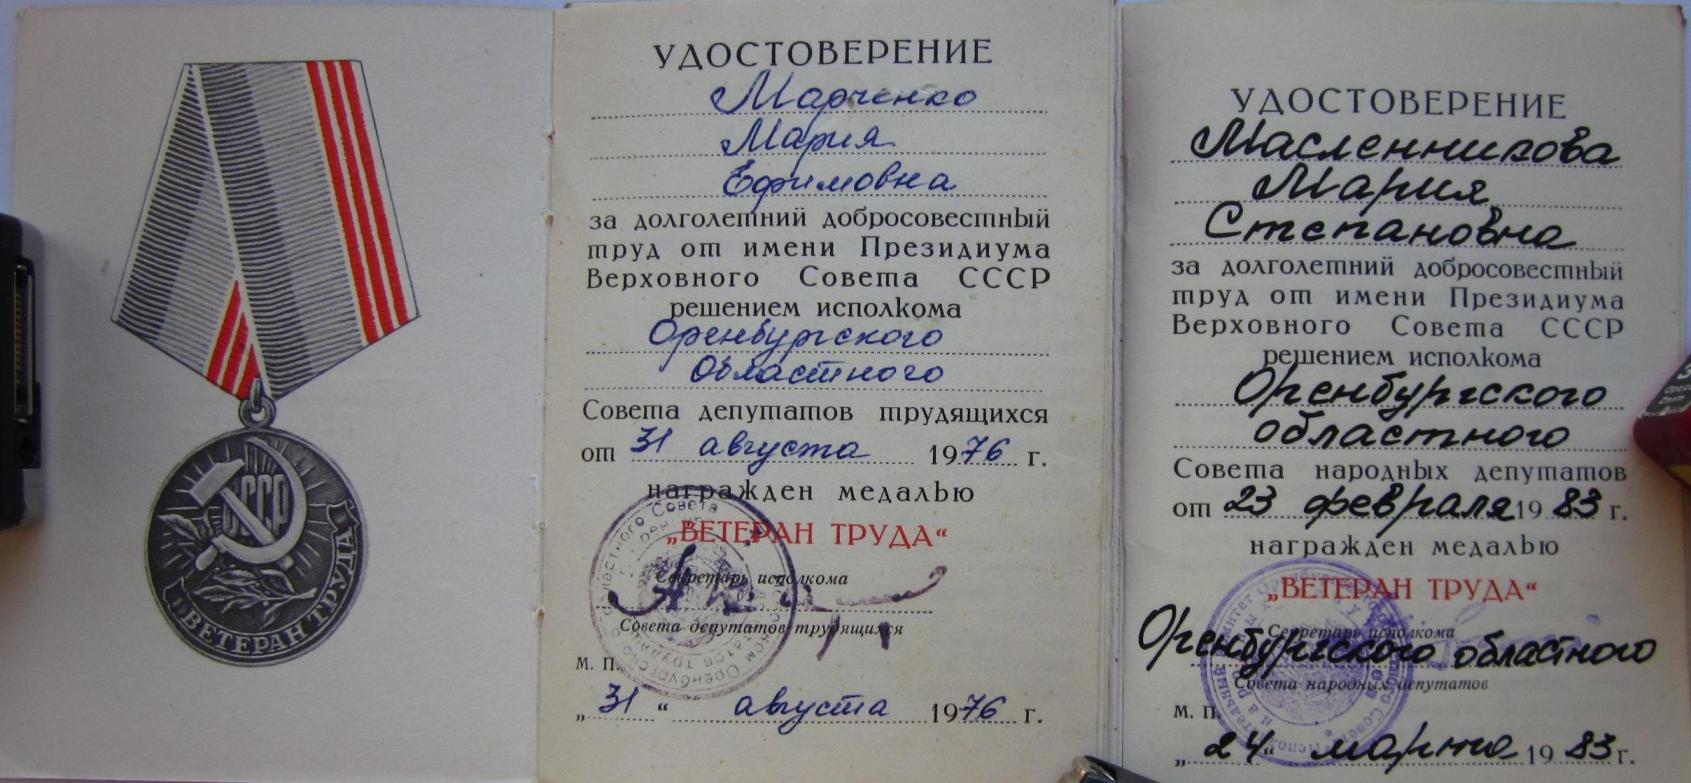 СССР
ВЕТЕРАН ТРУДА
УДОСТОВЕРЕНИЕ
Марченко
Мария
Ефимовна
за долголетний добросовестный
труд от имени Президиума
Верховного Совета СССР
решением исполкома
Оренбургского
Областного
Совета депутатов трудящихся
от 31 августа 1976 г.
награжден медалью
„ВЕТЕРАН ТРУДА“
Секретарь исполкома
Совета депутатов трудящихся
М. П.
„31“ августа 1976 г.
УДОСТОВЕРЕНИЕ
Масленникова
Мария
Степановна
за долголетний добросовестный
труд от имени Президиума
Верховного Совета СССР
решением исполкома
Оренбургского
областного
Совета народных депутатов
от 23 февраля 1983 г.
награжден медалью
„ВЕТЕРАН ТРУДА“
Секретарь исполкома
Оренбургского областного
Совета народных депутатов
М. П.
„24“ марта 1983 г.